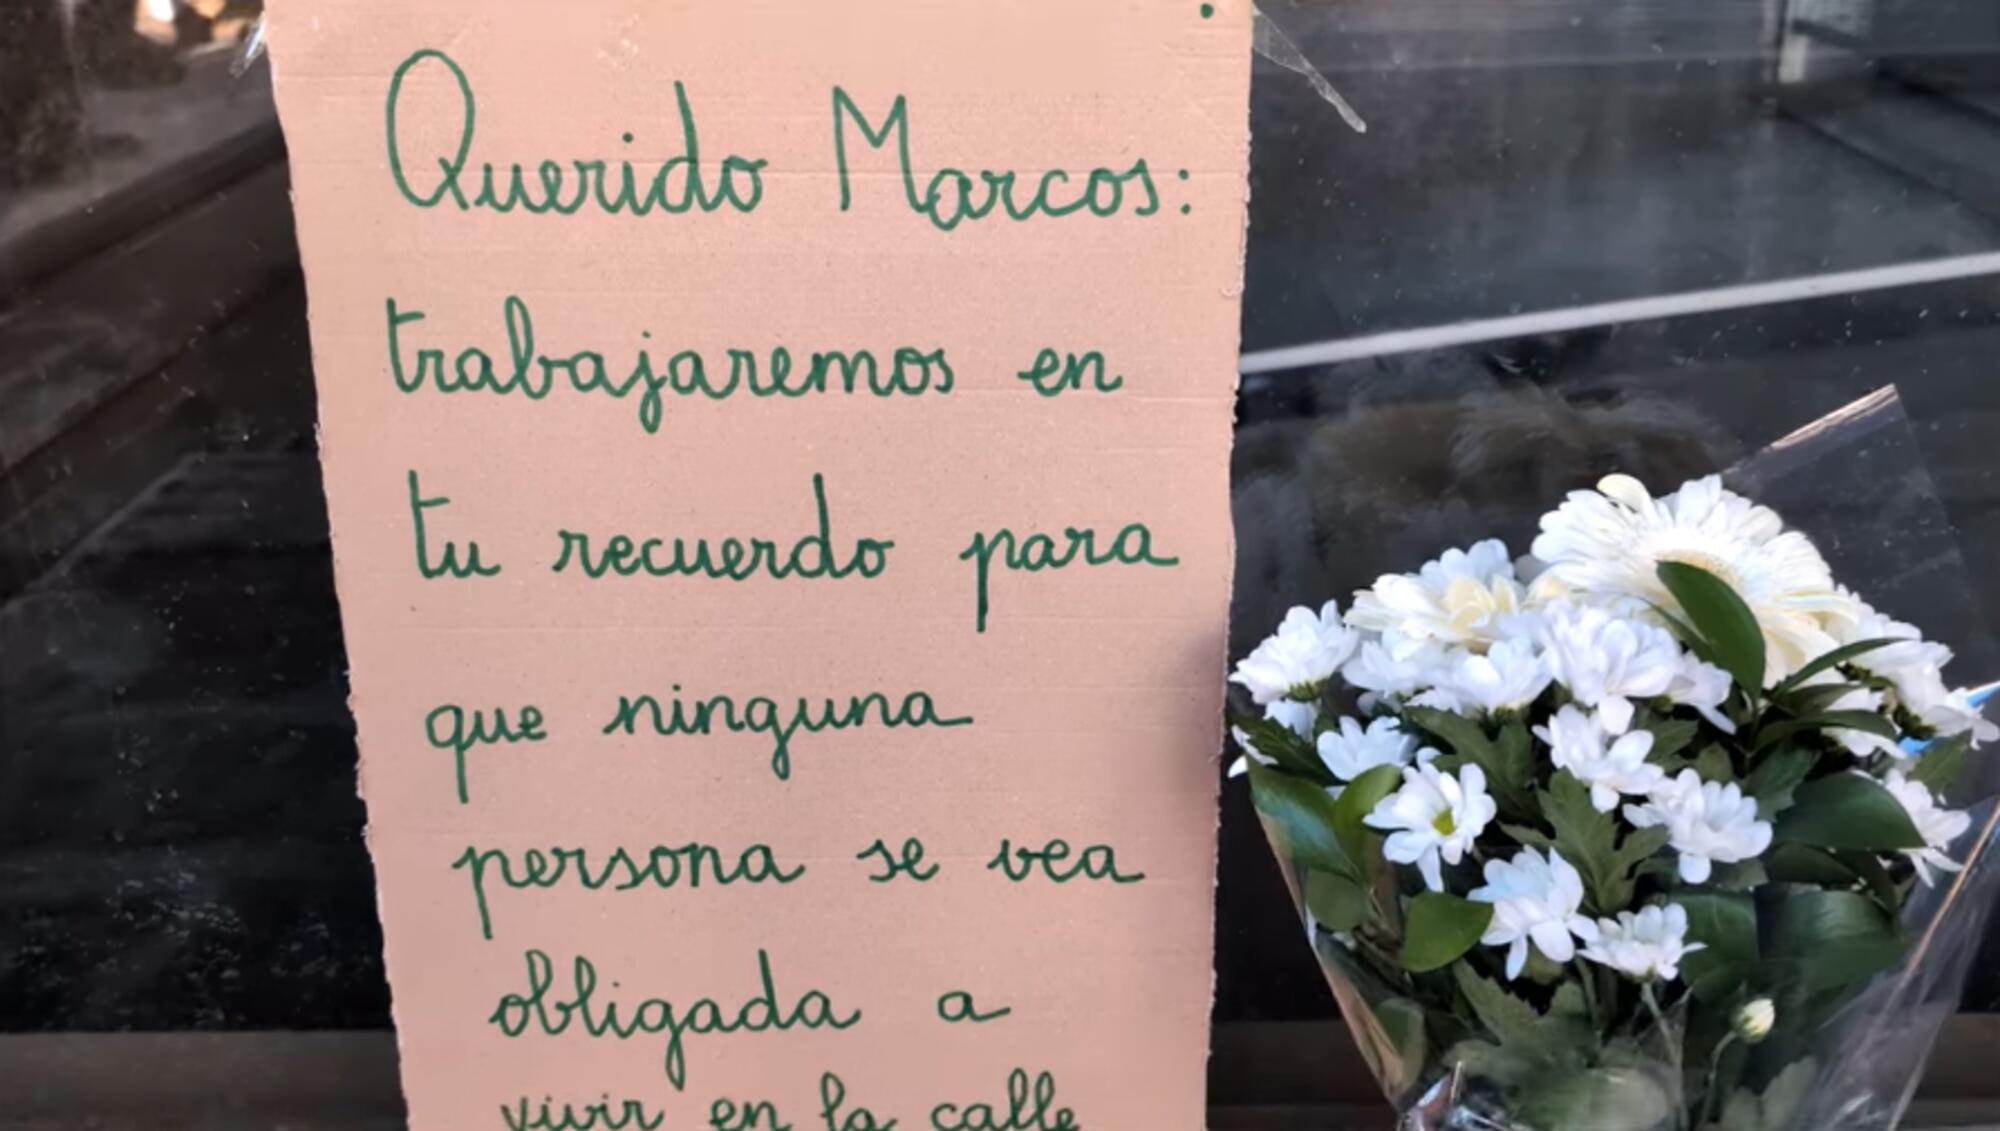 Querido Marcos:
trabajaremos en
tu recuerdo para
que ninguna
persona se vea
obligada a
vivir en la calle